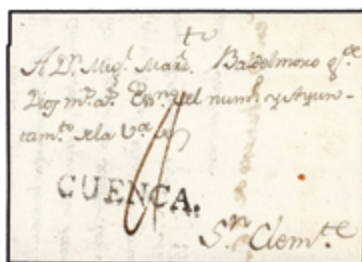 A Dn. Migl. Mart. Baldelmoro q.e
Dios m.s a.s Essno. del num.o y Ayun-
tam.to de la V.a de
CUENCA.
Sn. Clem.te